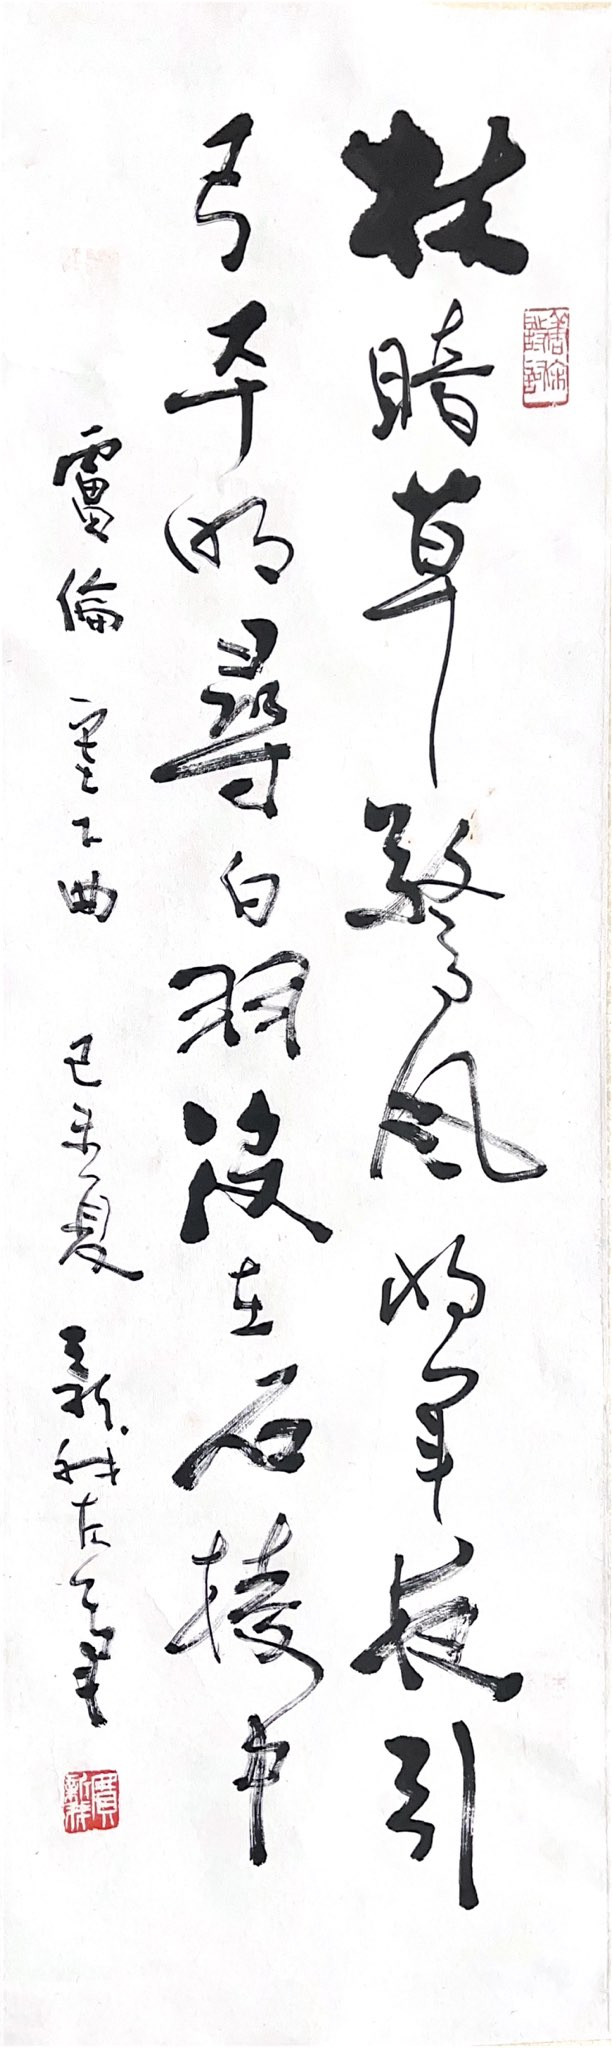 林暗草驚風將軍夜引
弓平明尋白羽沒在石棱中
雷倫 塞下曲 己未夏 新林左手書